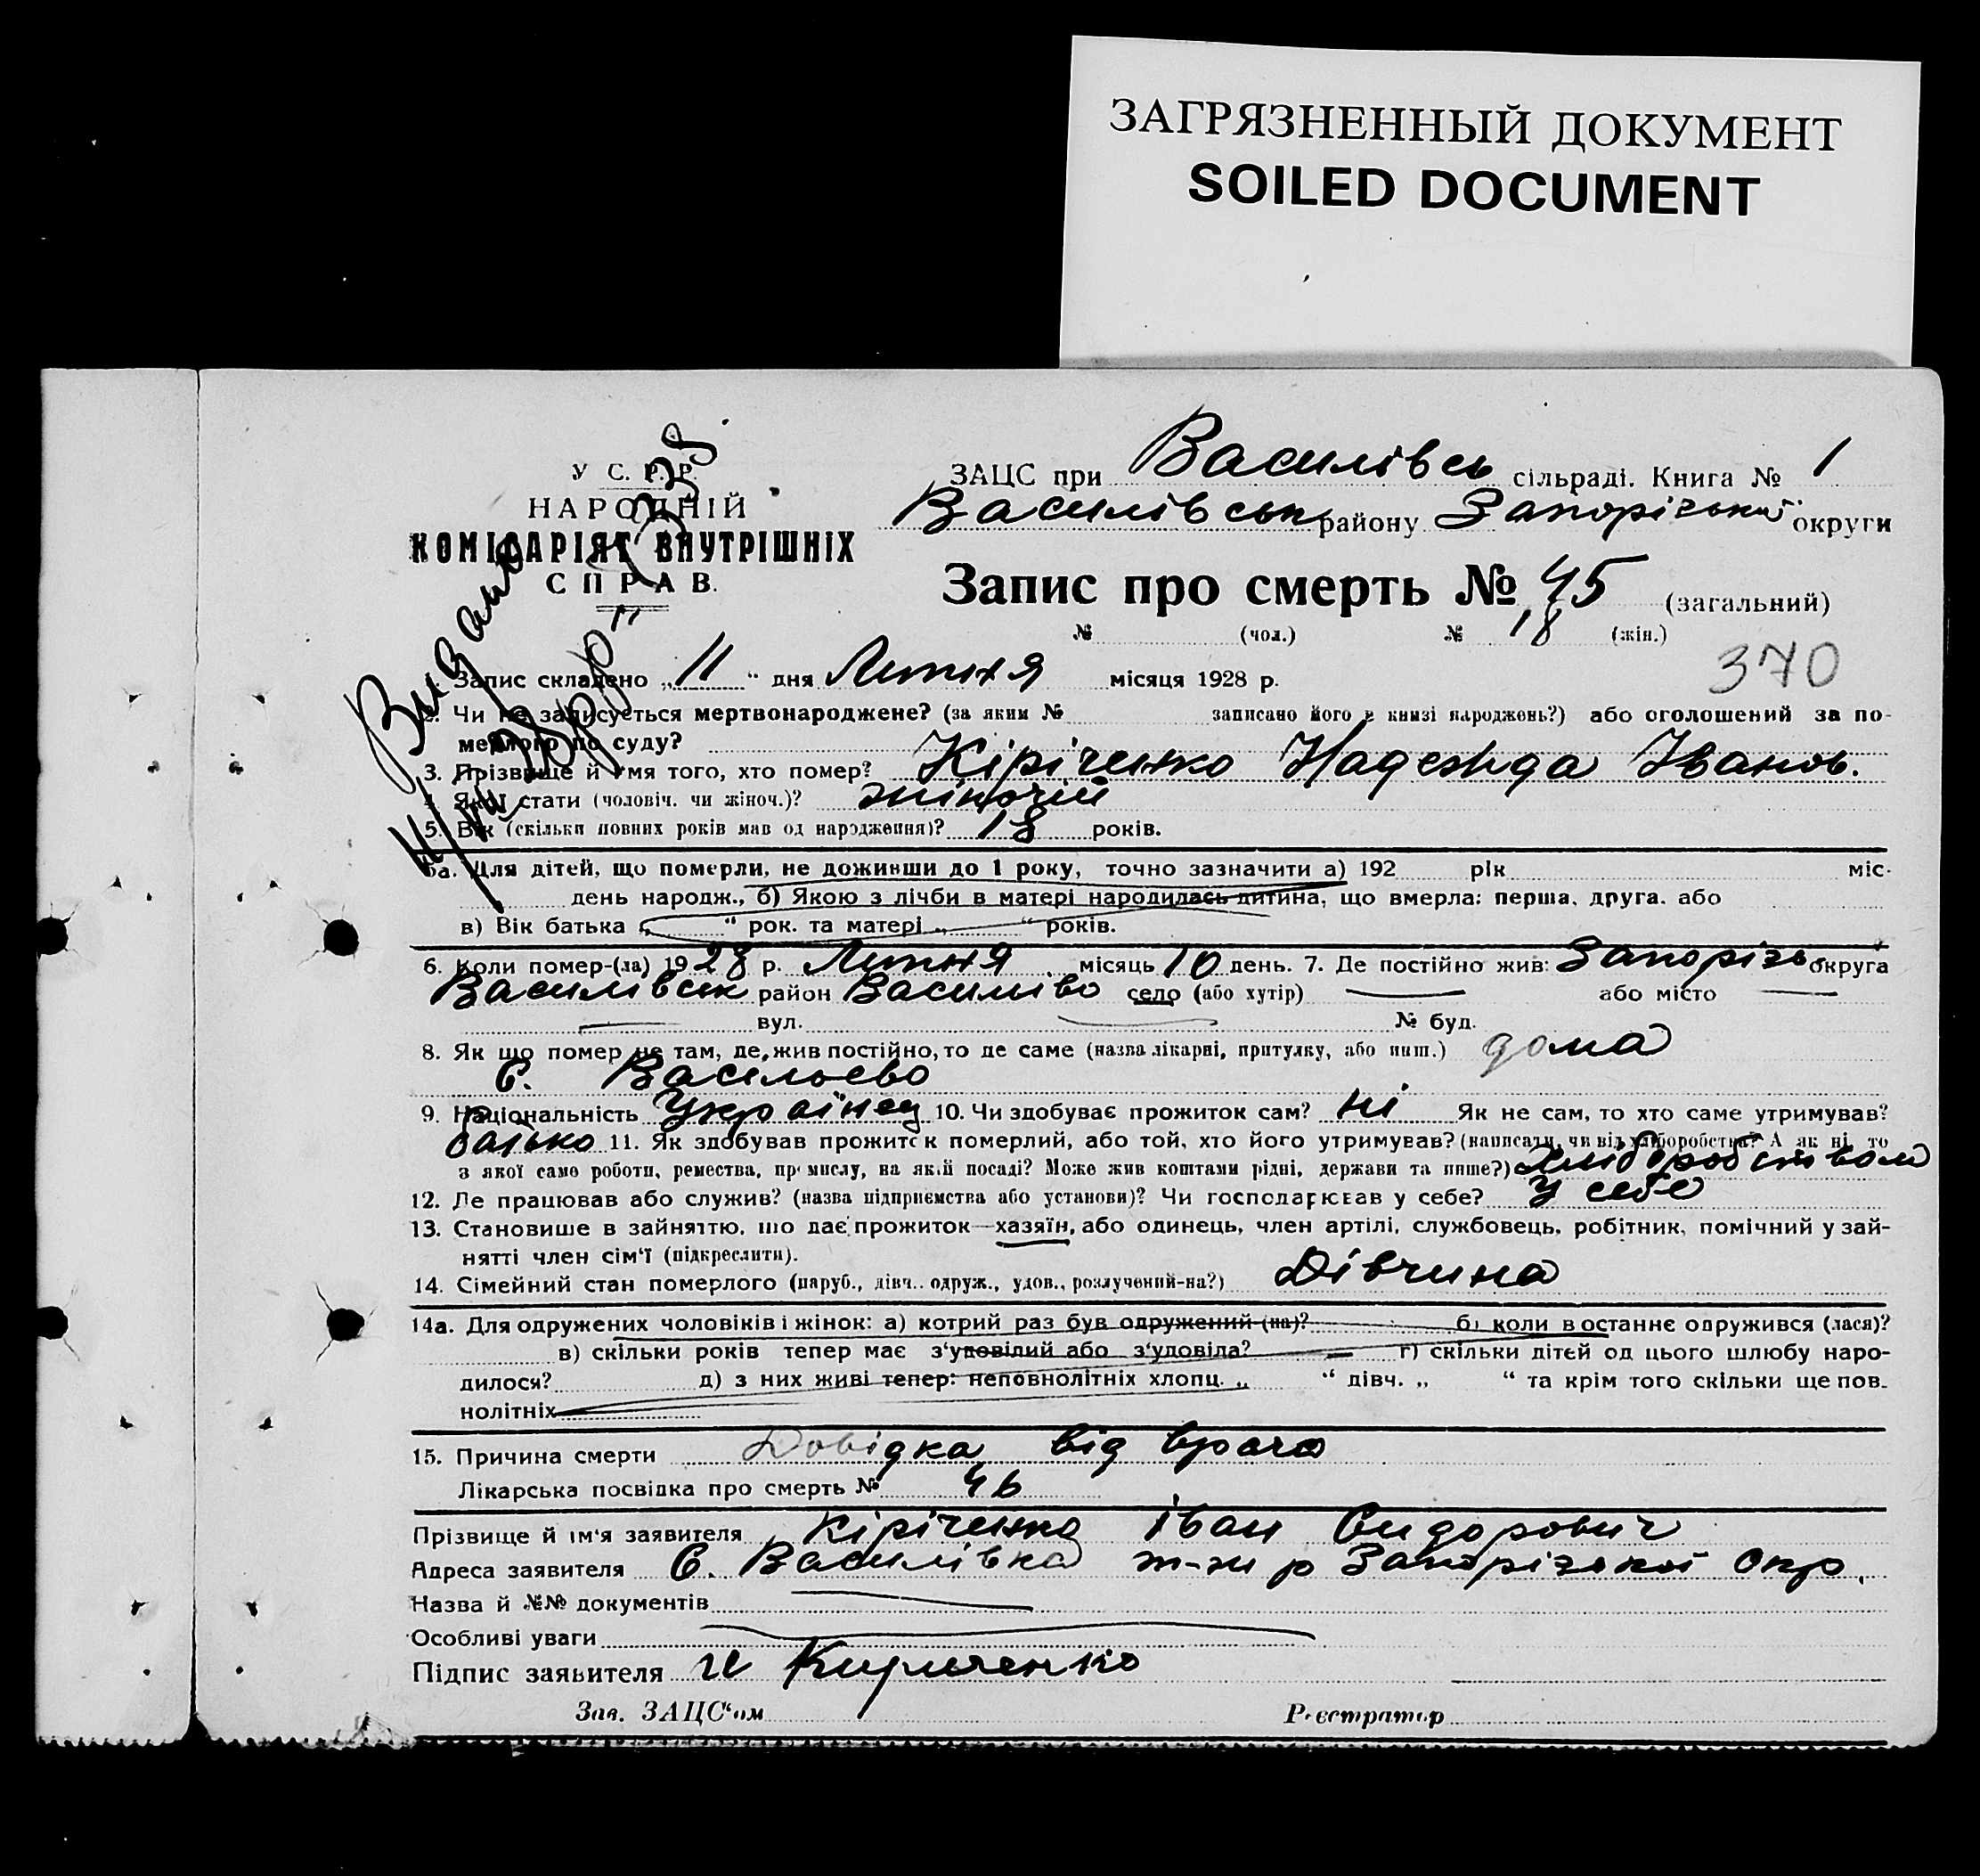 ЗАГРЯЗНЕННЫЙ ДОКУМЕНТ
SOILED DOCUMENT
У С. Р. Р.
НАРОДНІЙ
КОМІСАРІЯТ ВНУТРІШНІХ
СПРАВ.
ЗАЦС при Василівсь сільраді. Книга № 1
Василівськ району Запорізької округи
Запис про смерть № 45 (загальний)
№ (чол.) № 18 (жін.)
370
1. Запис складено „ 11 “ дня Липня місяця 1928 р.
2. Чи не записується мертвонароджене? (за яким № записано його в книзі народжень?) або оголошений за по-
мерлого по суду?
3. Прізвище й імя того, хто помер? Кіріченко Надежда Іванов.
4. Якої стати (чоловіч. чи жіноч.)? жіночій
5. Вік (скільки повних років мав од народження)? 18 років.
5а. Для дітей, що померли, не доживши до 1 року, точно зазначити а) 192 рік міс.
день народж., б) Якою з лічби в матері народилась дитина, що вмерла: перша, друга, або
в) Вік батька „ “ рок. та матері „ “ років.
6. Коли помер-(ла) 1928 р. Липня місяць 10 день. 7. Де постійно жив: Запорізь округа
Василівськ район Василіво село (або хутір) або місто
вул. № буд.
8. Як що помер не там, де жив постійно, то де саме (назва лікарні, притулку, або инш.) дома
С. Васильево
9. Національність Украінец 10. Чи здобуває прожиток сам? Ні Як не сам, то хто саме утримував?
батько 11. Як здобував прожиток померлий, або той, хто його утримував? (написати, чи від хліборобства? А як ні, то
з якої само роботи, ремества, промислу, на якій посаді? Може жив коштами рідні, держави та инше?) Хліборобством
12. Де працював або служив? (назва підприємства або установи)? Чи господарював у себе? У себе
13. Становище в зайняттю, що дає прожиток—хазяїн, або одинець, член артілі, службовець, робітник, помічний у зай-
нятті член сім'ї (підкреслити).
14. Сімейний стан померлого (паруб., дівч., одруж., удов., розлучений-на?) Дівчина
14а. Для одружених чоловіків і жінок: а) котрий раз був одружений (на)? б) коли востаннє одружився (лася)?
в) скільки років тепер має з'удовілий або з'удовіла? г) скільки дітей од цього шлюбу наро-
дилося? д) з них живі тепер: неповнолітніх хлопц. „ “ дівч. „ “ та крім того скільки ще пов-
нолітніх
15. Причина смерти Довідка від врача
Лікарська посвідка про смерть № 46
Прізвище й ім'я заявителя Кіріченко Іван Сидорович
Адреса заявителя С. Василівка т-ж р Запорізькоі Окр.
Назва й №№ документів
Особливі уваги
Підпис заявителя И Кириченко
Зав. ЗАЦС'ом Реєстратор